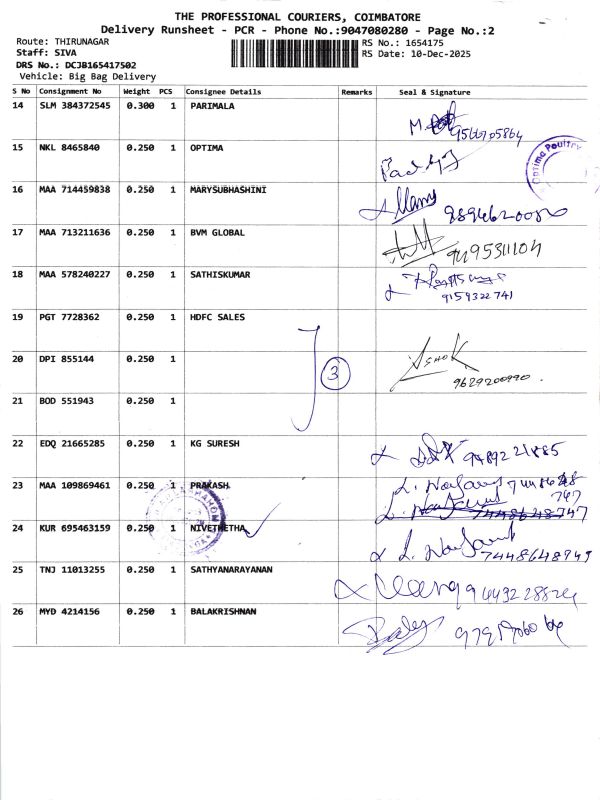 THE PROFESSIONAL COURIERS, COIMBATORE
Delivery Runsheet - PCR - Phone No.:9047080280 - Page No.:2
Route: THIRUNAGAR
RS No.: 1654175
Staff: SIVA
RS Date: 10-Dec-2025
DRS No.: DCJB165417502
Vehicle: Big Bag Delivery
S No Consignment No Weight PCS Consignee Details Remarks Seal & Signature
14 SLM 384372545 0.300 1 PARIMALA
9566705864
15 NKL 8465840 0.250 1 OPTIMA
Optima Poultry
16 MAA 714459838 0.250 1 MARYSUBHASHINI
Mary 9894620080
17 MAA 713211636 0.250 1 BVM GLOBAL
9495311104
18 MAA 578240227 0.250 1 SATHISKUMAR
9159322741
19 PGT 7728362 0.250 1 HDFC SALES
20 DPI 855144 0.250 1
3
ASHOK
9629200990
21 BOD 551943 0.250 1
22 EDQ 21665285 0.250 1 KG SURESH
9489221885
23 MAA 109869461 0.250 1 PRAKASH
24 KUR 695463159 0.250 1 NIVETHETHA
25 TNJ 11013255 0.250 1 SATHYANARAYANAN
26 MYD 4214156 0.250 1 BALAKRISHNAN